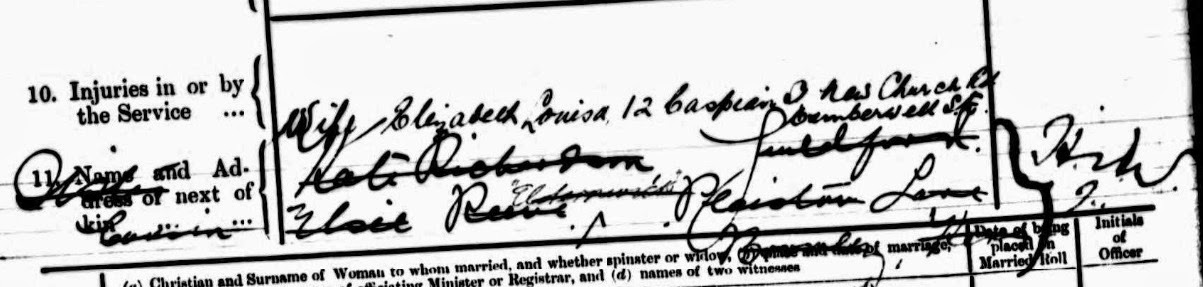 10. Injuries in or by
the Service ...
Wife Elizabeth Louisa, 12 Caspian New Church Rd
Camberwell S.E.
11. Name and Ad-
dress of next of
kin ... ...
Kate Richardson Guildford.
Cousin Elsie Plaistow Lane
(a) Christian and Surname of Woman to whom married, and whether spinster or widow, of marriage,
officiating Minister or Registrar, and (d) names of two witnesses
Date of being
placed on
Married Roll
Initials
of
Officer